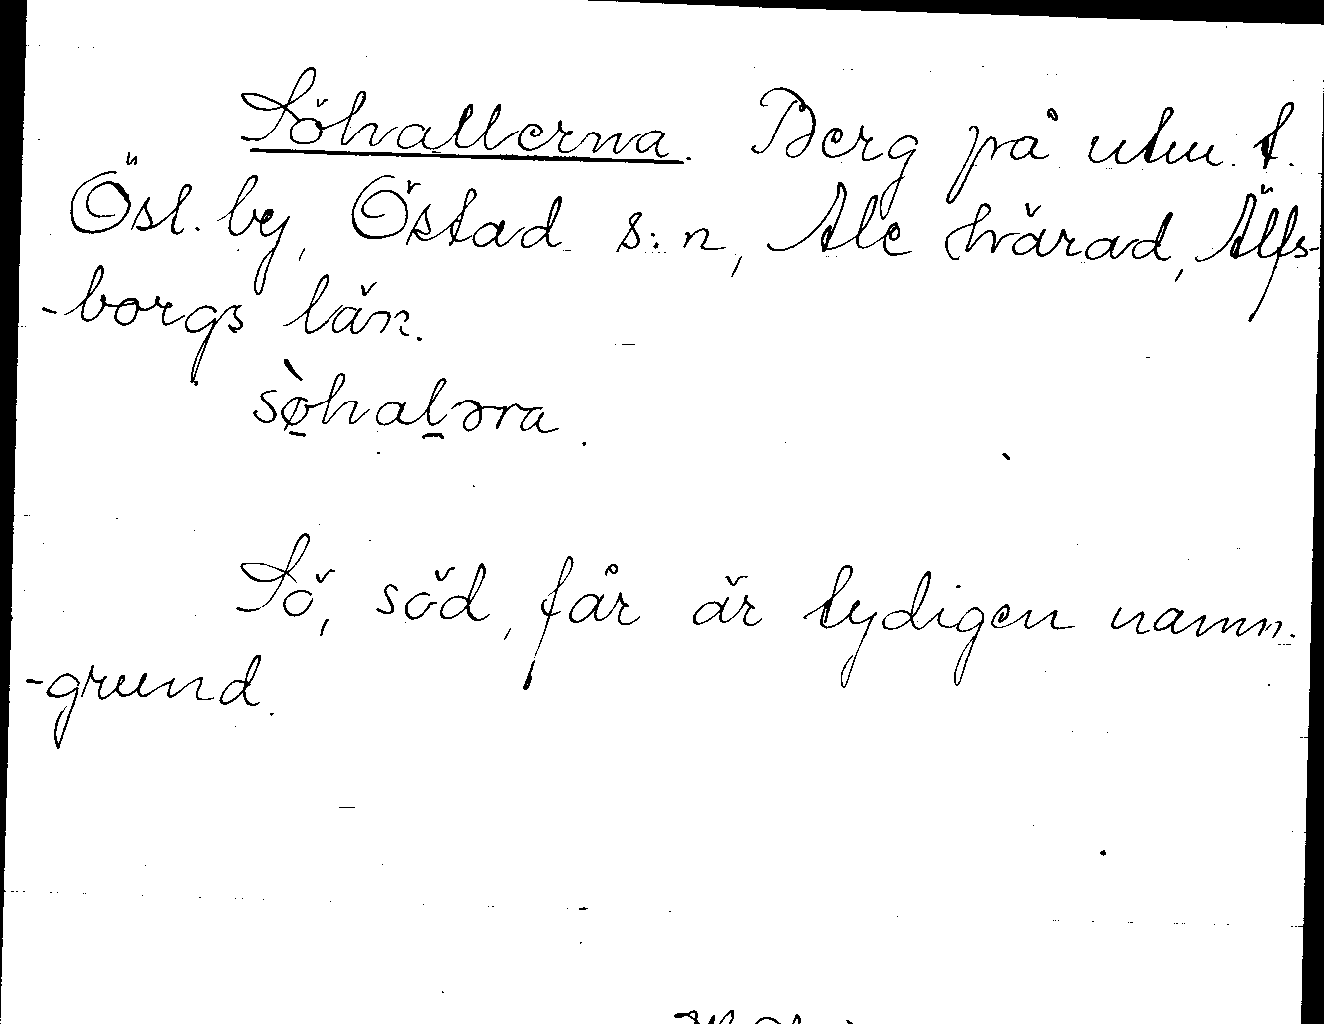 Söhallerna. Berg på utm. t.
Östl. by, Östad s:n, Ale härad, Älfs-
-borgs län.
sø̀halərra.
Sö, söd, får är tydigen namn-
-grund.